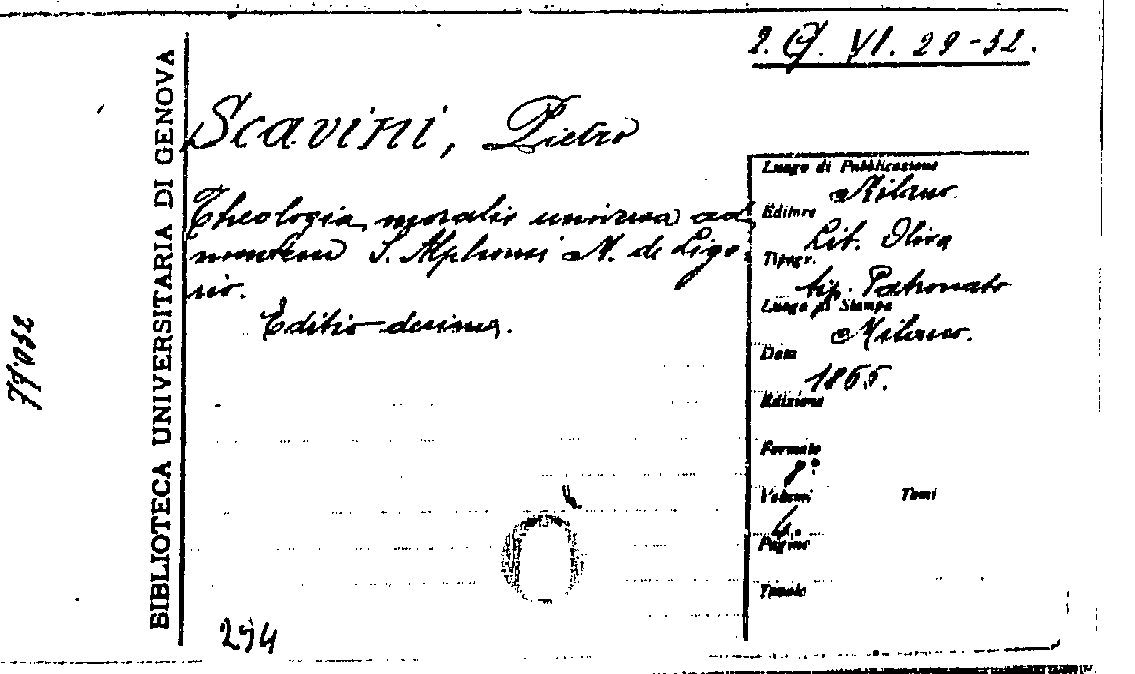 2. Q. VI. 29-32.
BIBLIOTECA UNIVERSITARIA DI GENOVA
Scavini, Pietro
Theologia moralis universa ad
mentem S. Alphonsi M. de Ligo-
rio.
Editio decima.
Luogo di Pubblicazione
Milano
Editore
Lit. Oliva
Tipogr.
tip. Patronato
Luogo di Stampa
Milano.
Data
1865.
Edizione
Formato
8°
Volumi Tomi
4.
Pagine
Tavole
294